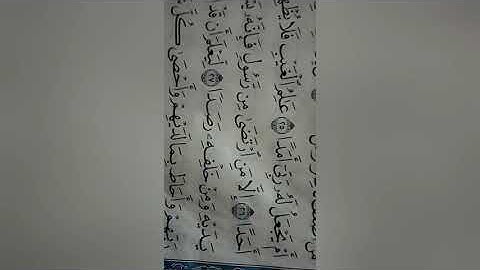 أَمْ يَجْعَلُ لَهُ رَبِّي أَمَدًا ٢٥ عَٰلِمُ ٱلْغَيْبِ فَلَا
أَحَدًا ٢٦ إِلَّا مَنِ ٱرْتَضَىٰ مِن رَّسُولٍ فَإِنَّهُ
يَدَيْهِ وَمِنْ خَلْفِهِ رَصَدًا ٢٧ لِّيَعْلَمَ أَن قَدْ
رَبِّهِمْ وَأَحَاطَ بِمَا لَدَيْهِمْ وَأَحْصَىٰ كُلَّ